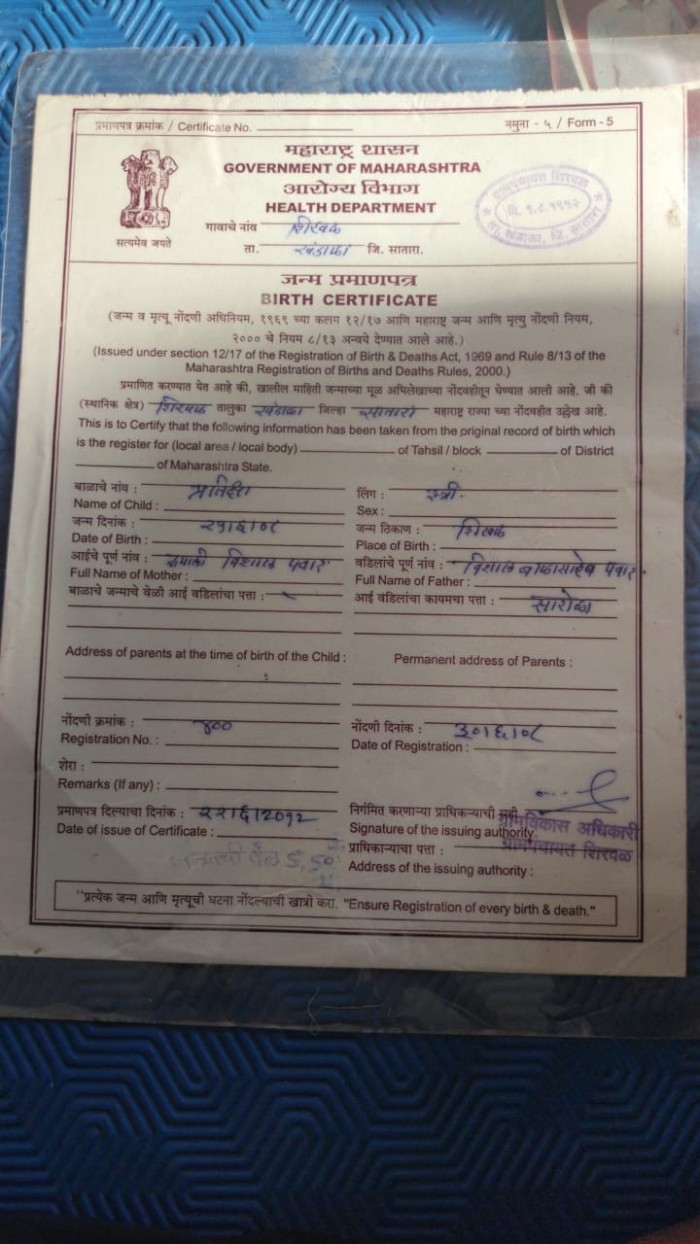 प्रमाणपत्र क्रमांक / Certificate No.
नमुना - ५ / Form - 5
महाराष्ट्र शासन
GOVERNMENT OF MAHARASHTRA
आरोग्य विभाग
HEALTH DEPARTMENT
सत्यमेव जयते
गावाचे नांव शिरवळ
ता. खंडाळा जि. सातारा.
जन्म प्रमाणपत्र
BIRTH CERTIFICATE
(जन्म व मृत्यू नोंदणी अधिनियम, १९६९ च्या कलम १२/१७ आणि महाराष्ट्र जन्म आणि मृत्यु नोंदणी नियम,
२००० चे नियम ८/१३ अन्वये देण्यात आले आहे.)
(Issued under section 12/17 of the Registration of Birth & Deaths Act, 1969 and Rule 8/13 of the
Maharashtra Registration of Births and Deaths Rules, 2000.)
प्रमाणित करण्यात येत आहे की, खालील माहिती जन्माच्या मूळ अभिलेखाच्या नोंदवहीतून घेण्यात आली आहे. जी की
(स्थानिक क्षेत्र) शिरवळ तालुका खंडाळा जिल्हा सातारा महाराष्ट्र राज्या च्या नोंदवहीत उल्लेख आहे.
This is to Certify that the following information has been taken from the original record of birth which
is the register for (local area / local body) of Tahsil / block of District
of Maharashtra State.
बाळाचे नांव :
Name of Child :
लिंग : स्त्री.
Sex :
जन्म दिनांक :
Date of Birth :
जन्म ठिकाण : शिरवळ
Place of Birth :
आईचे पूर्ण नांव : रूपाली विशाल पवार
Full Name of Mother :
वडिलांचे पूर्ण नांव : विशाल बाळासाहेब पवार
Full Name of Father :
बाळाचे जन्माचे वेळी आई वडिलांचा पत्ता :
आई वडिलांचा कायमचा पत्ता : सारोळा
Address of parents at the time of birth of the Child :
Permanent address of Parents :
नोंदणी क्रमांक : ४००
Registration No. :
नोंदणी दिनांक : ३०।६।०८
Date of Registration :
शेरा :
Remarks (If any) :
प्रमाणपत्र दिल्याचा दिनांक : २२।६।२०१२
Date of issue of Certificate :
निर्गमित करणाऱ्या प्राधिकऱ्याची सही
Signature of the issuing authority.
ग्रामविकास अधिकारी
प्राधिकाऱ्याचा पत्ता :
ग्रामपंचायत शिरवळ
Address of the issuing authority :
"प्रत्येक जन्म आणि मृत्यूची घटना नोंदल्याची खात्री करा. "Ensure Registration of every birth & death."